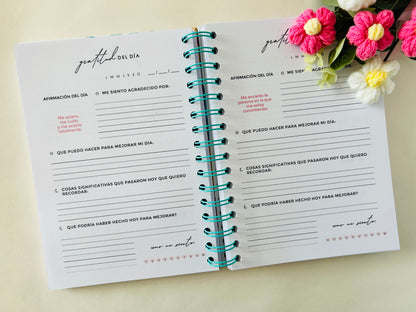 gratitud DEL DÍA
L M M J V S D __/__/__
AFIRMACIÓN DEL DÍA
ME SIENTO AGRADECIDO POR:
Me quiero,
me cuido
y me acepto
totalmente
QUE PUEDO HACER PARA MEJORAR MI DÍA:
COSAS SIGNIFICATIVAS QUE PASARON HOY QUE QUIERO
RECORDAR:
QUE PODRÍA HABER HECHO HOY PARA MEJORAR?
como me siento:
gratitud DEL DÍA
L M M J V S D
AFIRMACIÓN DEL DÍA
ME SIENTO AGRADECIDO POR:
Me encanta la
persona en la que
me estoy
convirtiendo
QUE PUEDO HACER PARA MEJORAR MI DÍA:
COSAS SIGNIFICATIVAS QUE PASARON HOY QUE QUIERO
RECORDAR:
QUE PODRÍA HABER HECHO HOY PARA MEJORAR?
como me siento: